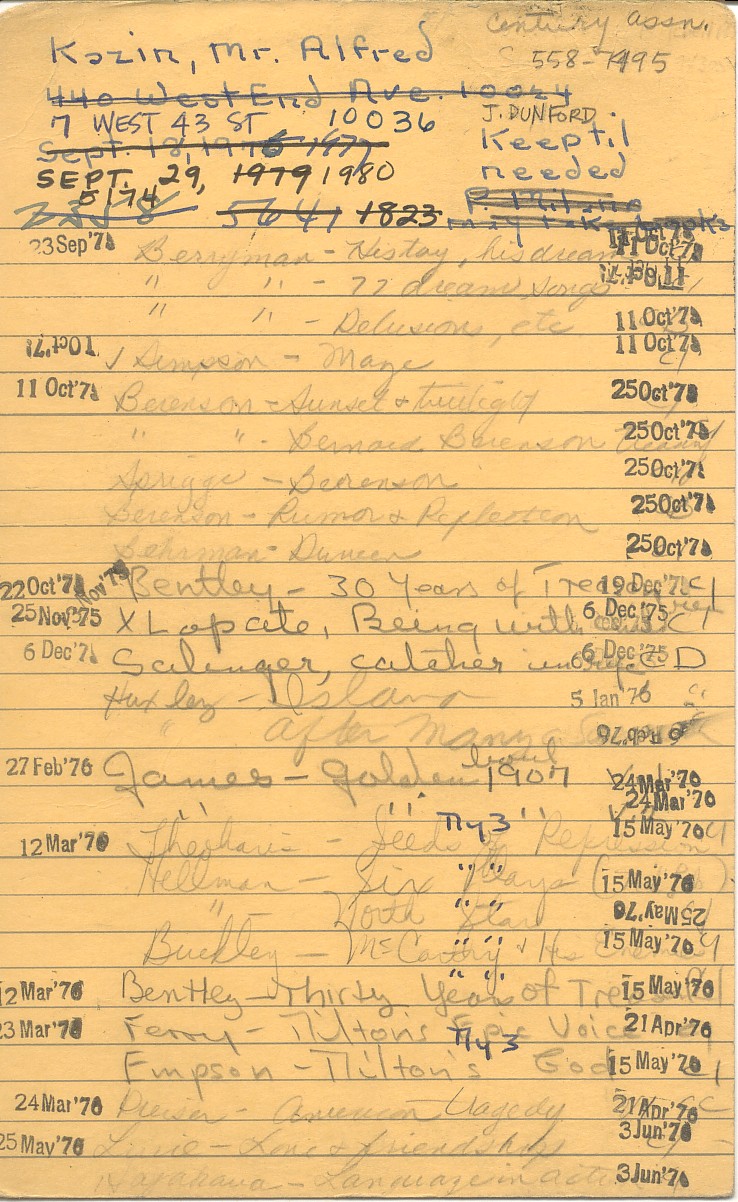 Century assn.
Kazin, Mr. Alfred
558-7495
440 West End Ave. 10024
7 WEST 43 ST 10036 J. DUNFORD
Keep til
Sept. 18, 1976 1977
needed
SEPT. 29, 1979 1980
5174 P. Milano
5641 1823 may take books
23 Sep'7 Berryman - His toy, his dream 11 Oct'7
" " - 77 dream songs
" " - Delusions, etc 11 Oct'7
1 Oct'7 Simpson - Maze 11 Oct'7
11 Oct'7 Berenson - Sunset & twilight 25 Oct'7
" " - Bernard Berenson Treasury 25 Oct'7
Sprigge - Berenson 25 Oct'7
Berenson - Rumor & Reflection 25 Oct'7
Behrman - Duveen 25 Oct'7
22 Oct'7 Bentley - 30 Years of Treason 19 Dec'7
25 Nov'75 X Lopate, Being with 6 Dec'75
6 Dec'7 Salinger, catcher in rye 6 Dec'75 CD
Huxley - Island 5 Jan'76
" After Many a Feb'76
27 Feb'76 James - Golden bowl 1907 24 Mar'76
" " " " 24 Mar'76
12 Mar'76 Theoharis - Seeds of Repression My 3 15 May'76
Hellman - Six Plays " " 15 May'76
" North Star " " 25 May'76
Buckley - McCarthy & His Enemies " " 15 May'76
12 Mar'76 Bentley - Thirty Years of Treason " " 15 May'76
23 Mar'76 Ferry - Milton's Epic Voice 21 Apr'76
Empson - Milton's God My 3 15 May'76
24 Mar'76 Dreiser - American tragedy 21 Apr'76
25 May'76 Lurie - Love & friendship 3 Jun'76
Hayakawa - Language in action 3 Jun'76